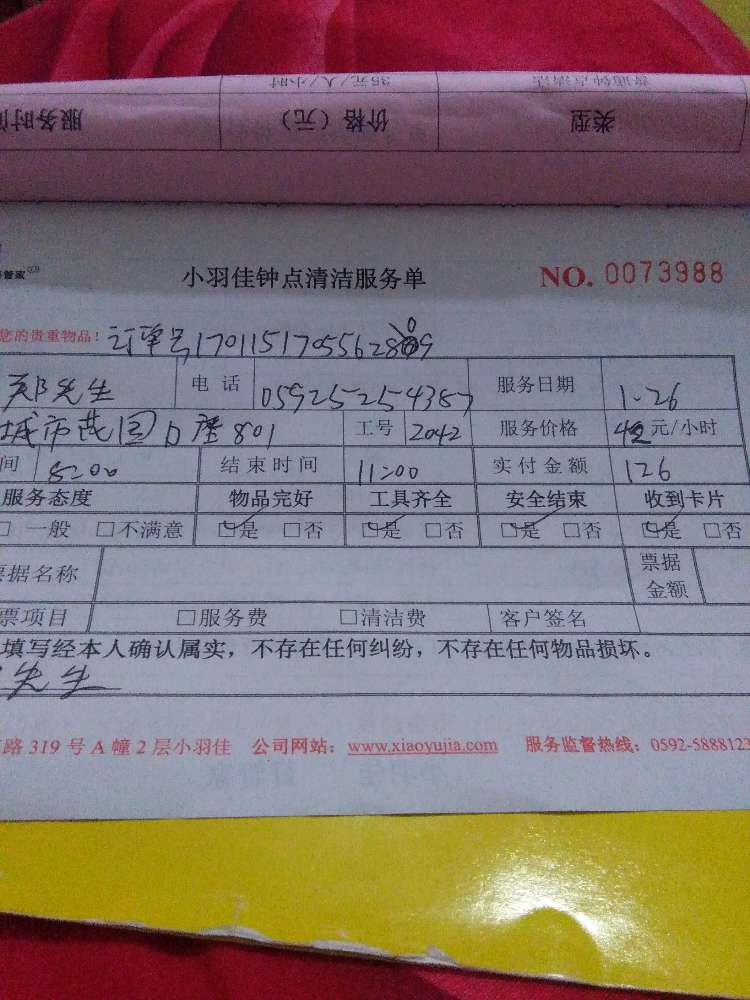 普通钟点清洁 35元/人/小时
类型 价格（元） 服务时间
管家
小羽佳钟点清洁服务单 NO. 0073988
您的贵重物品！ 订单号
郑先生 电话 05925254387 服务日期 1.26
城市花园D座801 工号 2042 服务价格 42元/小时
间 8:00 结束时间 11:00 实付金额 126
服务态度 物品完好 工具齐全 安全结束 收到卡片
□ 一般 □不满意 ☑是 □否 ☑是 □否 ☑是 □否 ☑是 □否
票据名称 票据金额
票项目 □服务费 □清洁费 客户签名
填写经本人确认属实，不存在任何纠纷，不存在任何物品损坏。
先生
路 319 号 A 幢 2 层小羽佳 公司网站：www.xiaoyujia.com 服务监督热线：0592-5888123